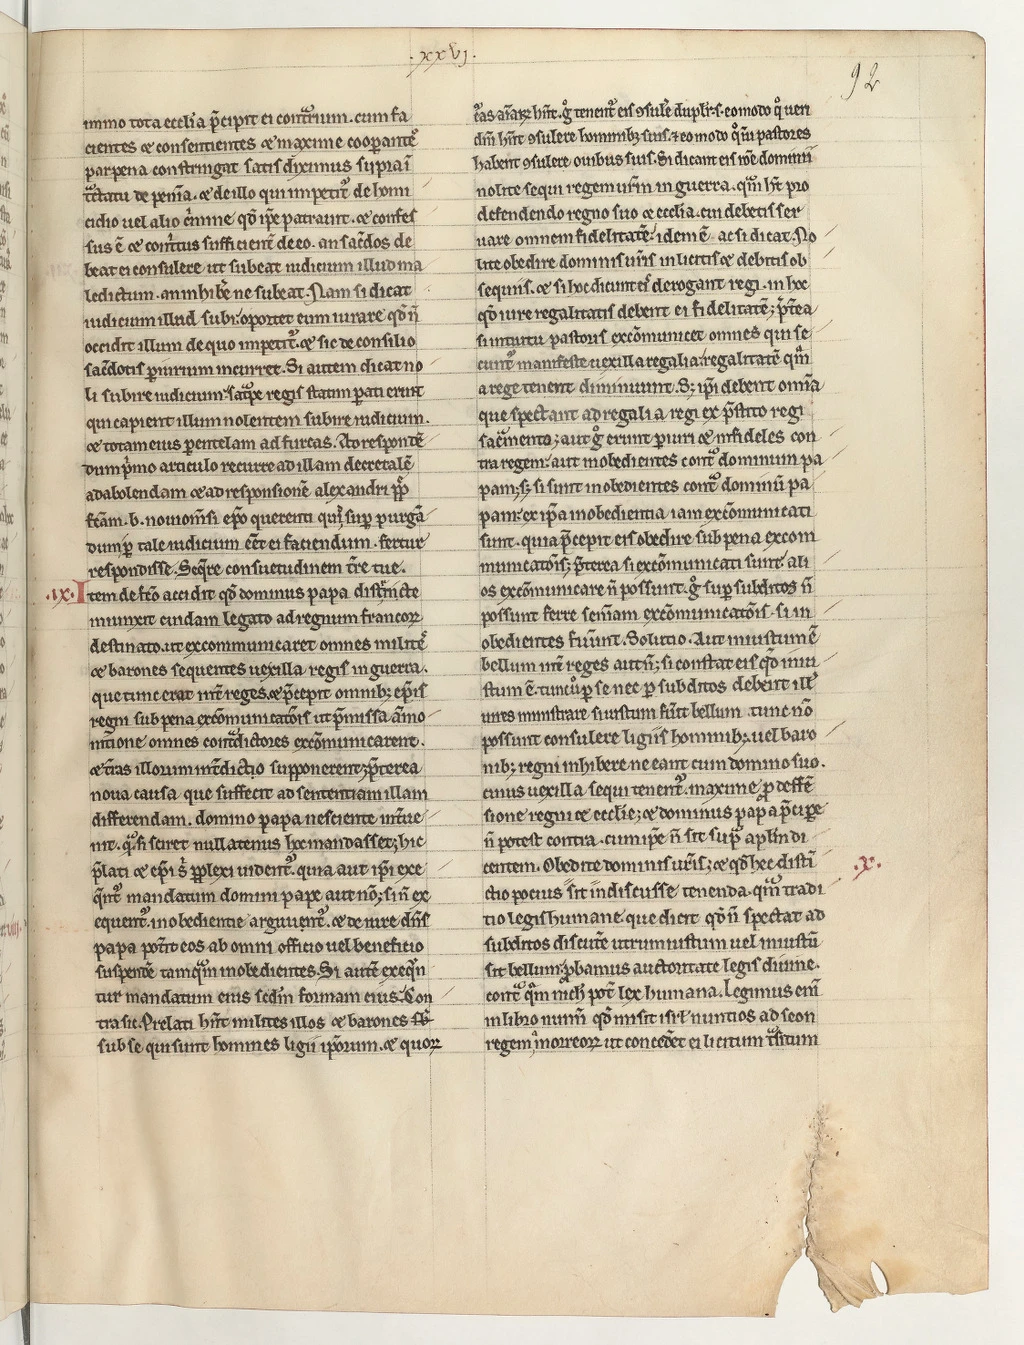 .xxvj.
92
immo tota eccl̄ia p̄cipit ei contͣrium. cum fa
cientes ⁊ consentientes ⁊ maxime coop̲antes
par pena constringat satis diximus supra ī
tͣctatu de penīa. ⁊ de illo qui impetitᷣ de homi
cidio uel alio cͥmine qd̄ ip̄e patrauit. ⁊ confes
sus ē ⁊ contͥtus sufficientᷣ de eo. an sac̄dos de
beat ei consulere ut subeat iudicium illud ma
ledictum. an inhibere ne subeat. Nam si dicat
iudicium illud subi. oportet eum iurare qd̄ n̄
occidit illum de quo impetitᷣ. ⁊ sic de consilio
sac̄dotis p̲iurium incurret. Si autem dicat no
li subire iudicium. satͣpe regis statim p̲ati erunt
qui capient illum nolentem subire iudicium.
⁊ totam eius parentelam ad furcas. Ad respondē
dum pͥmo articulo recurre ad illam decretalē
ad abolendam ⁊ ad responsionē alexandri pp̄
t̄cii .b. nouiom̄si ep̄o querenti qͥd sup̲ purgā
dum p̲ tale iudicium eēt ei faciendum. fertur
respondisse. Seqͥre consuetudinem tr̄e tue.
.ix. Item de fc̄o accidit qd̄ dominus papa distͥncte
iniunxit cuidam legato ad regnum francoꝝ
destinato. ut excommunicaret omnes milites
⁊ barones sequentes uexilla regis in guerra.
que tunc erat int̄ reges. ⁊ p̄cepit omnibꝫ ep̄is
regni sub pena excōmunicatōis ut p̄missa āmo
nitione omnes contͣdictores excōmunicarent.
⁊ tr̄as illorum int̄dicto supponerent; p̄terea
noua causa que suffecit ad sententiam illam
differendam. domino papa nesciente int̄ue
nit. qͣm si sciret nullatenus hoc mandasset; hic
p̄lati ⁊ ep̄i s̄ pp̲lexi uidentᷣ. quia aut ip̄i exe
qͥntᷣ mandatum domini pape aut nō; si n̄ ex
equentᷣ. inobedientie arguuntᷣ. ⁊ de iure dn̄s
papa potͥt eos ab omni officio uel beneficio
suspendere tamqͣm inobedientes. Si autē exeqͥn
tur mandatum eius sed'm formam eius. Con
tra sic. Prelati hn̄t milites illos ⁊ barones
sub se qui sunt homines ligii ip̄orum. ⁊ quoꝝ
aīas aīaꝝ hn̄t. gͦ tenentᷣ eis ꝯsulere duplicīt s. eo modo qͦ ueri
dn̄i hn̄t ꝯsulere hominibꝫ suis. ⁊ eo modo qͦ etiam pastores
habent ꝯsulere ouibus suis. Si dicant eis nolite
nolite sequi regem ur̄m in guerra. qͣm hēt pro
defendendo regno suo ⁊ eccl̄ia. cui debetis ser
uare omnem fidelitatē. idem ē ac si dicāt. No
lite obedire dominis ur̄is in licitis ⁊ debitis ob
sequiis. ⁊ si hoc dicunt eis derogant regi. in hoc
qd̄ iure regalitatis debent ei fidelitatē; p̄terea
si intuitu pastoris excōmunicent omnes qui se
cuntᷣ manifeste uexilla regalia. regalitatē qͣm
a rege tenent diminuunt. Sꝫ ip̄i debent omīa
que spectant ad regalia regi ex p̄stito regi
sacͣmento; aut gͦ erunt p̲iuri ⁊ infideles con
tra regem. aut inobedientes contͣ dominum pa
pam; sꝫ si sunt inobedientes contͣ dominū pa
pam. ex ip̄a inobedientia iam excōmunicati
sunt. quia p̄cepit eis obedire sub pena excom
municatōis; p̄terea si excōmunicati sunt. ali
os excōmunicare n̄ possunt. gͦ sup̲ subditos n̄
possunt ferre sent̄iam excōmunicatōis. si in
obedientes fuͥunt. Solutio. Aut iniustum ē
bellum int̄ reges aut n̄; si constat eis qd̄ iniu
stum ē. tunc nͦ p̲ se nec p̲ subditos debent illis
uires ministrare. si iustum fuͥit bellum. tunc nō
possunt consulere ligiis hominibꝫ. uel baro
nibꝫ regni inhibere ne eant cum domino suo.
cuius uexilla sequi tenentᷣ. maxime ꝓ deffē
sione regni ⁊ eccl̄ie; ⁊ dominus papa p̄cipe
n̄ potest contra. cum ip̄e n̄ sit supͣ apl̄m di
centem. Obedite dominis ur̄is; ⁊ qd̄ hec disti
ctio pocius sit indiscusse tenenda. qͣm tradi
tio legis humane. que dicit qd̄ n̄ spectat ad
subditos discutere utrum iustum uel iniustū
sit bellum; ꝓbamus auctoritate legis diuine.
contͣ qͣm nich̄ potest lex humana. Legimus enī
in libro numi. qd̄ misit isrl̄ nuntios ad seon
regem amorreoꝝ ut concedet ei licitum tͣnsitum
.x.